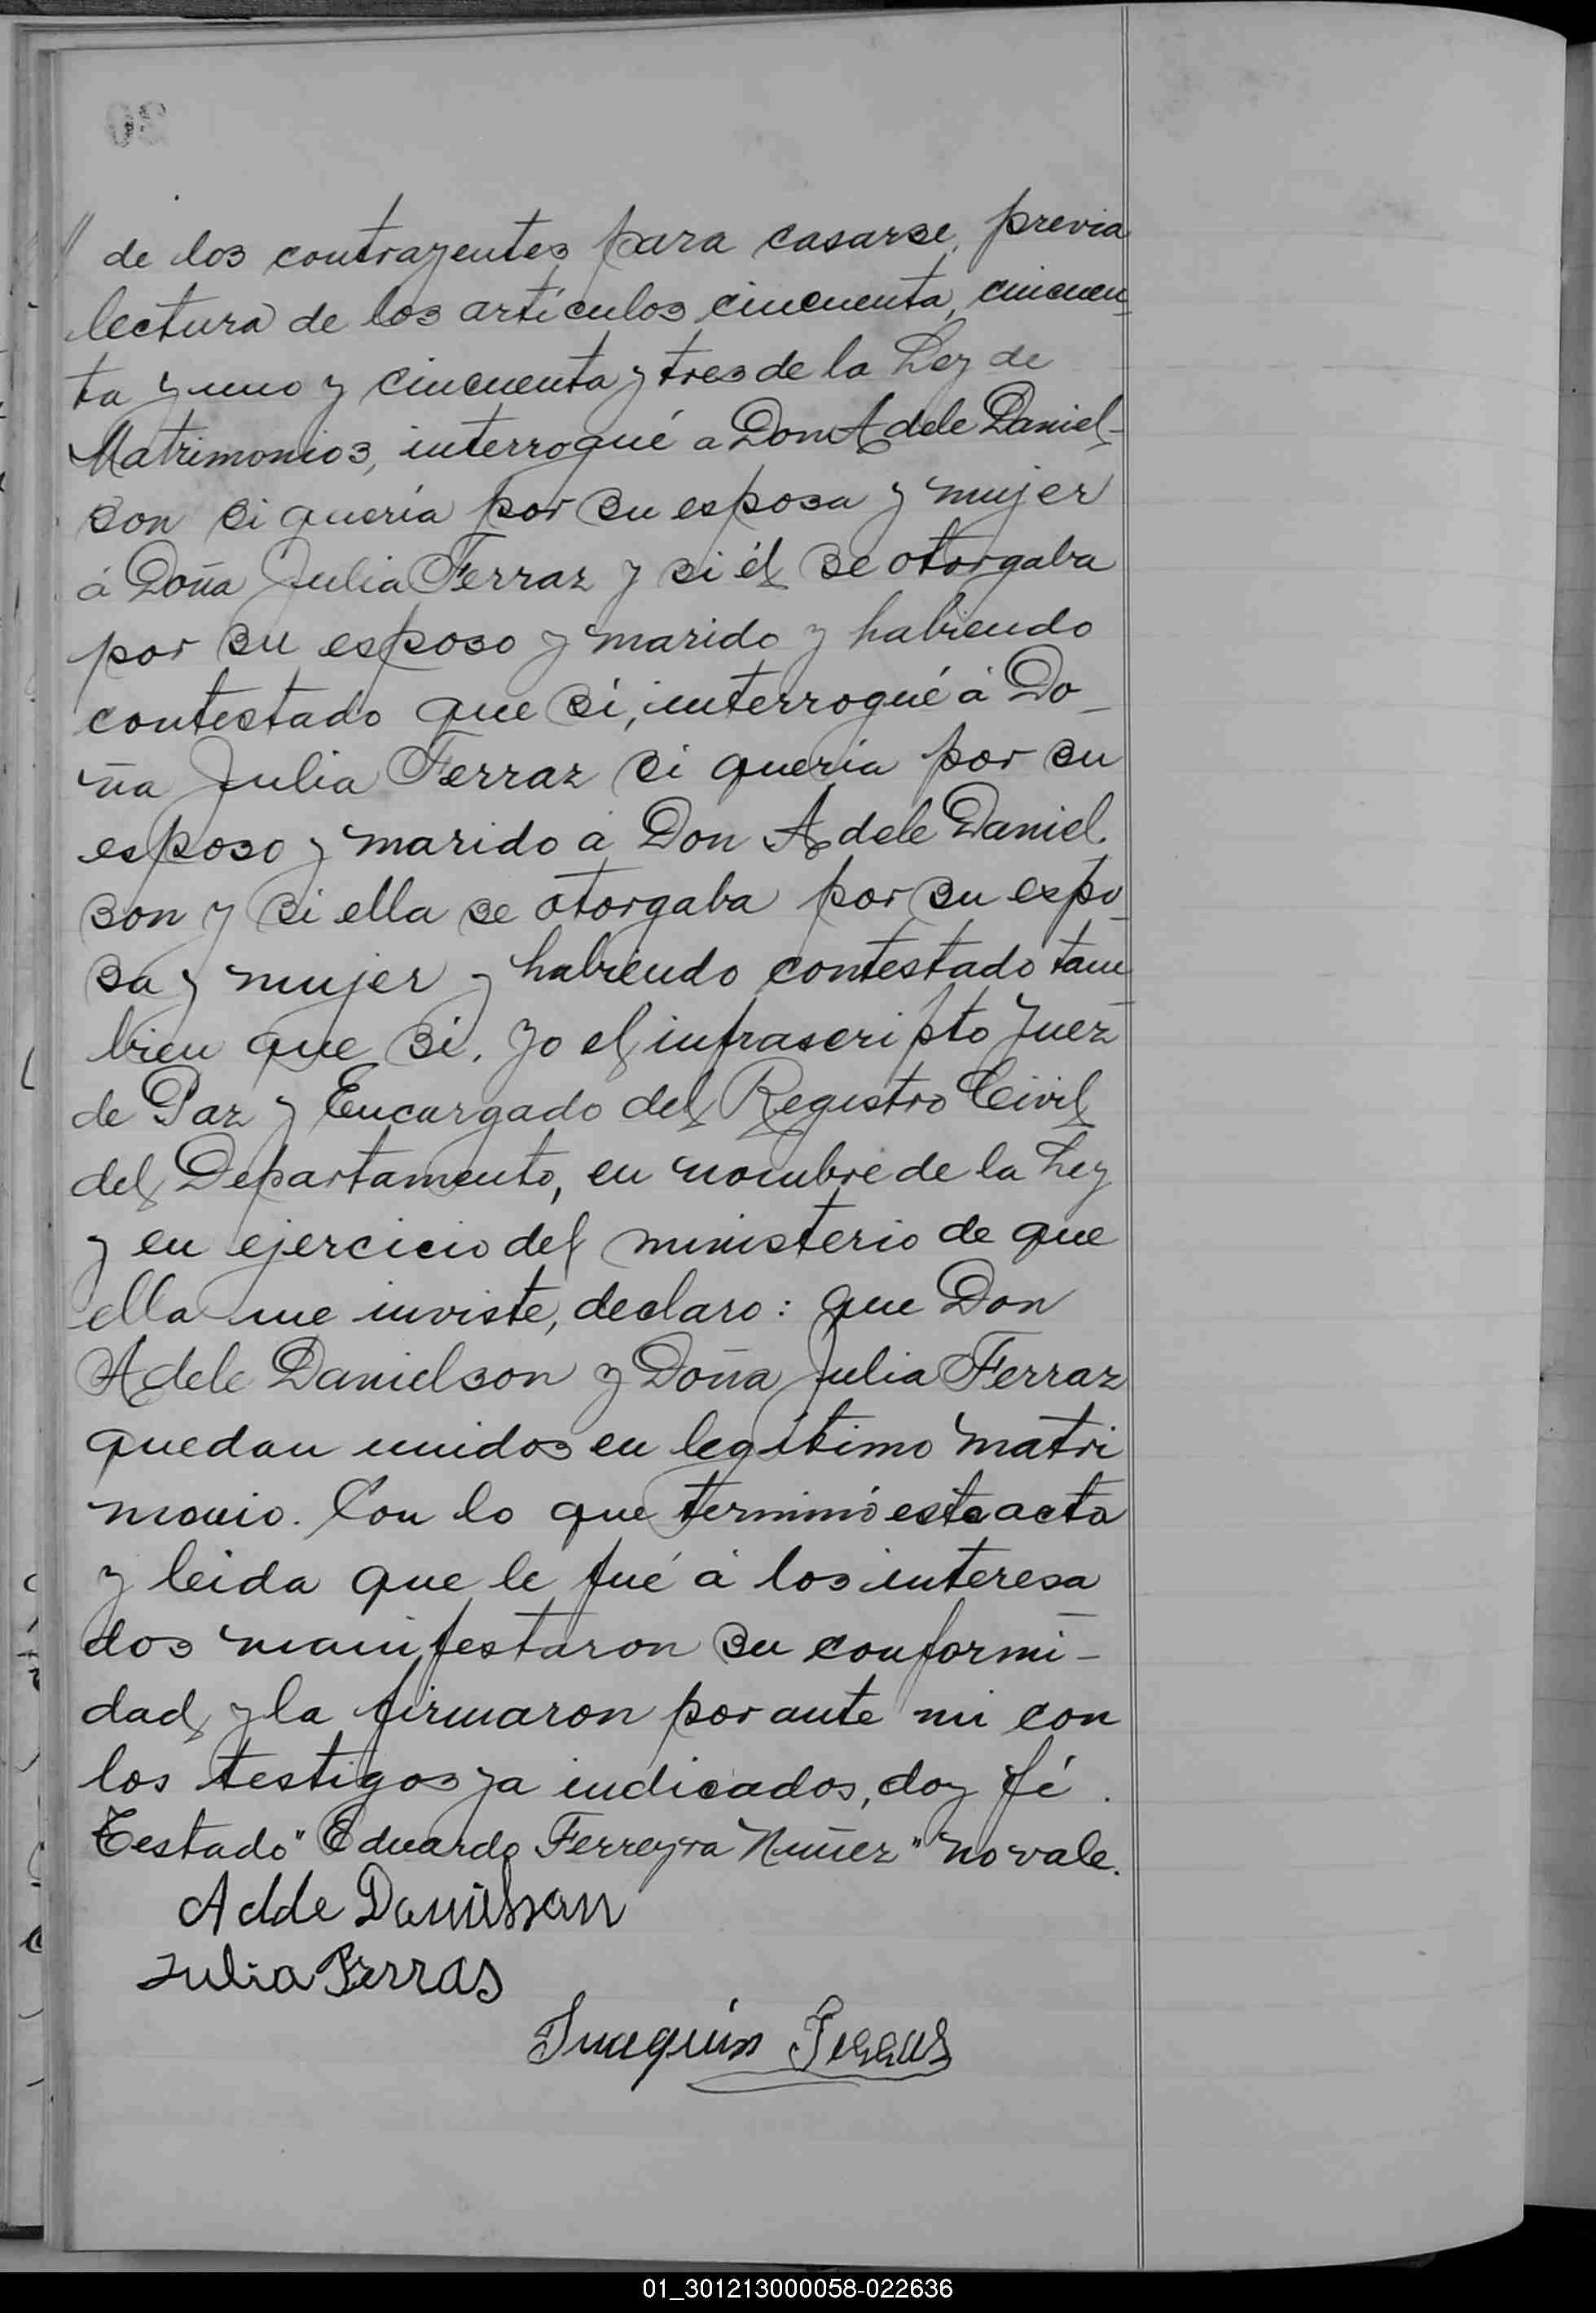 // de los contrayentes para casarse, previa
lectura de los artículos cincuenta, cincuen_
ta y uno y cincuenta y tres de la Ley de
Matrimonios, interrogué a Don Adele Daniel-
son si quería por su esposa y mujer
á Doña Julia Ferraz y si él se otorgaba
por su esposo y marido y habiendo
contestado que si, interrogué á Do_
ña Julia Ferraz si quería por su
esposo y marido á Don Adele Daniel.
son y si ella se otorgaba por su espo_
sa y mujer y habiendo contestado tam_
bien que si. Yo el infrascripto Juez
de Paz y Encargado del Registro Civil
del Departamento, en nombre de la Ley
y en ejercicio del ministerio de que
ella me inviste, declaro: que Don
Adele Danielson y Doña Julia Ferraz
quedan unidos en legítimo matri
monio. Con lo que terminó este acto
y leida que le fué á los interesa_
dos manifestaron su conformi-
dad y la firmaron por ante mi con
los testigos ya indicados, doy fé.
Testado "Eduardo Ferreyra Nuñez" no vale.
Adde Danielsson
Julia Ferras
Juaquin Ferras
01_301213000058-022636